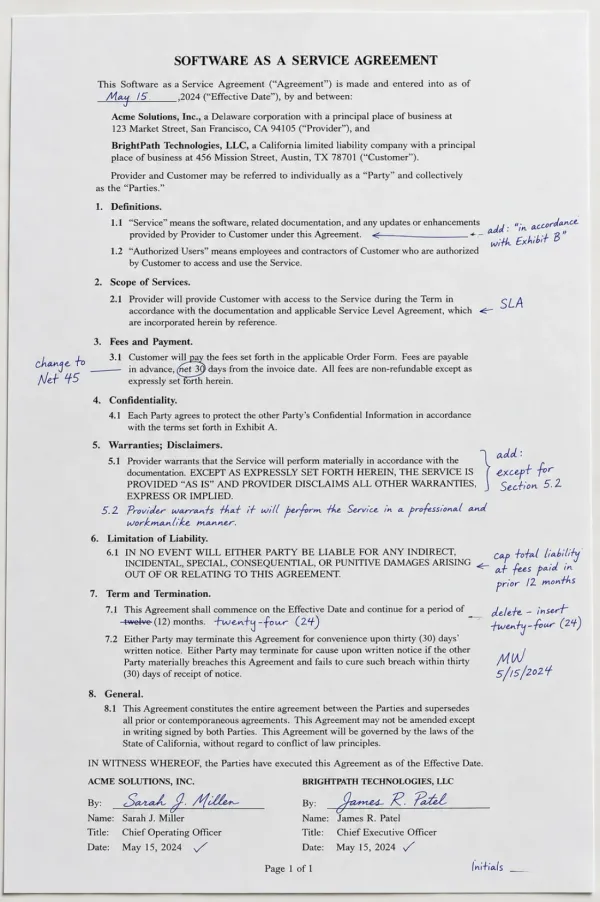 SOFTWARE AS A SERVICE AGREEMENT
This Software as a Service Agreement (“Agreement”) is made and entered into as of
May 15 ,2024 (“Effective Date”), by and between:
Acme Solutions, Inc., a Delaware corporation with a principal place of business at
123 Market Street, San Francisco, CA 94105 (“Provider”), and
BrightPath Technologies, LLC, a California limited liability company with a principal
place of business at 456 Mission Street, Austin, TX 78701 (“Customer”).
Provider and Customer may be referred to individually as a “Party” and collectively
as the “Parties.”
1. Definitions.
1.1 “Service” means the software, related documentation, and any updates or enhancements
provided by Provider to Customer under this Agreement.
add: “in accordance
with Exhibit B”
1.2 “Authorized Users” means employees and contractors of Customer who are authorized
by Customer to access and use the Service.
2. Scope of Services.
2.1 Provider will provide Customer with access to the Service during the Term in
accordance with the documentation and applicable Service Level Agreement, which
are incorporated herein by reference.
SLA
3. Fees and Payment.
change to
Net 45
3.1 Customer will pay the fees set forth in the applicable Order Form. Fees are payable
in advance, net 30 days from the invoice date. All fees are non-refundable except as
expressly set forth herein.
4. Confidentiality.
4.1 Each Party agrees to protect the other Party’s Confidential Information in accordance
with the terms set forth in Exhibit A.
5. Warranties; Disclaimers.
5.1 Provider warrants that the Service will perform materially in accordance with the
documentation. EXCEPT AS EXPRESSLY SET FORTH HEREIN, THE SERVICE IS
PROVIDED “AS IS” AND PROVIDER DISCLAIMS ALL OTHER WARRANTIES,
EXPRESS OR IMPLIED.
add:
except for
Section 5.2
5.2 Provider warrants that it will perform the Service in a professional and
workmanlike manner.
6. Limitation of Liability.
6.1 IN NO EVENT WILL EITHER PARTY BE LIABLE FOR ANY INDIRECT,
INCIDENTAL, SPECIAL, CONSEQUENTIAL, OR PUNITIVE DAMAGES ARISING
OUT OF OR RELATING TO THIS AGREEMENT.
cap total liability
at fees paid in
prior 12 months
7. Term and Termination.
7.1 This Agreement shall commence on the Effective Date and continue for a period of
twelve (12) months. twenty-four (24)
delete – insert
twenty-four (24)
7.2 Either Party may terminate this Agreement for convenience upon thirty (30) days’
written notice. Either Party may terminate for cause upon written notice if the other
Party materially breaches this Agreement and fails to cure such breach within thirty
(30) days of receipt of notice.
MW
5/15/2024
8. General.
8.1 This Agreement constitutes the entire agreement between the Parties and supersedes
all prior or contemporaneous agreements. This Agreement may not be amended except
in writing signed by both Parties. This Agreement will be governed by the laws of the
State of California, without regard to conflict of law principles.
IN WITNESS WHEREOF, the Parties have executed this Agreement as of the Effective Date.
ACME SOLUTIONS, INC.
By: Sarah J. Miller
Name: Sarah J. Miller
Title: Chief Operating Officer
Date: May 15, 2024 ✓
BRIGHTPATH TECHNOLOGIES, LLC
By: James R. Patel
Name: James R. Patel
Title: Chief Executive Officer
Date: May 15, 2024 ✓
Page 1 of 1
Initials __